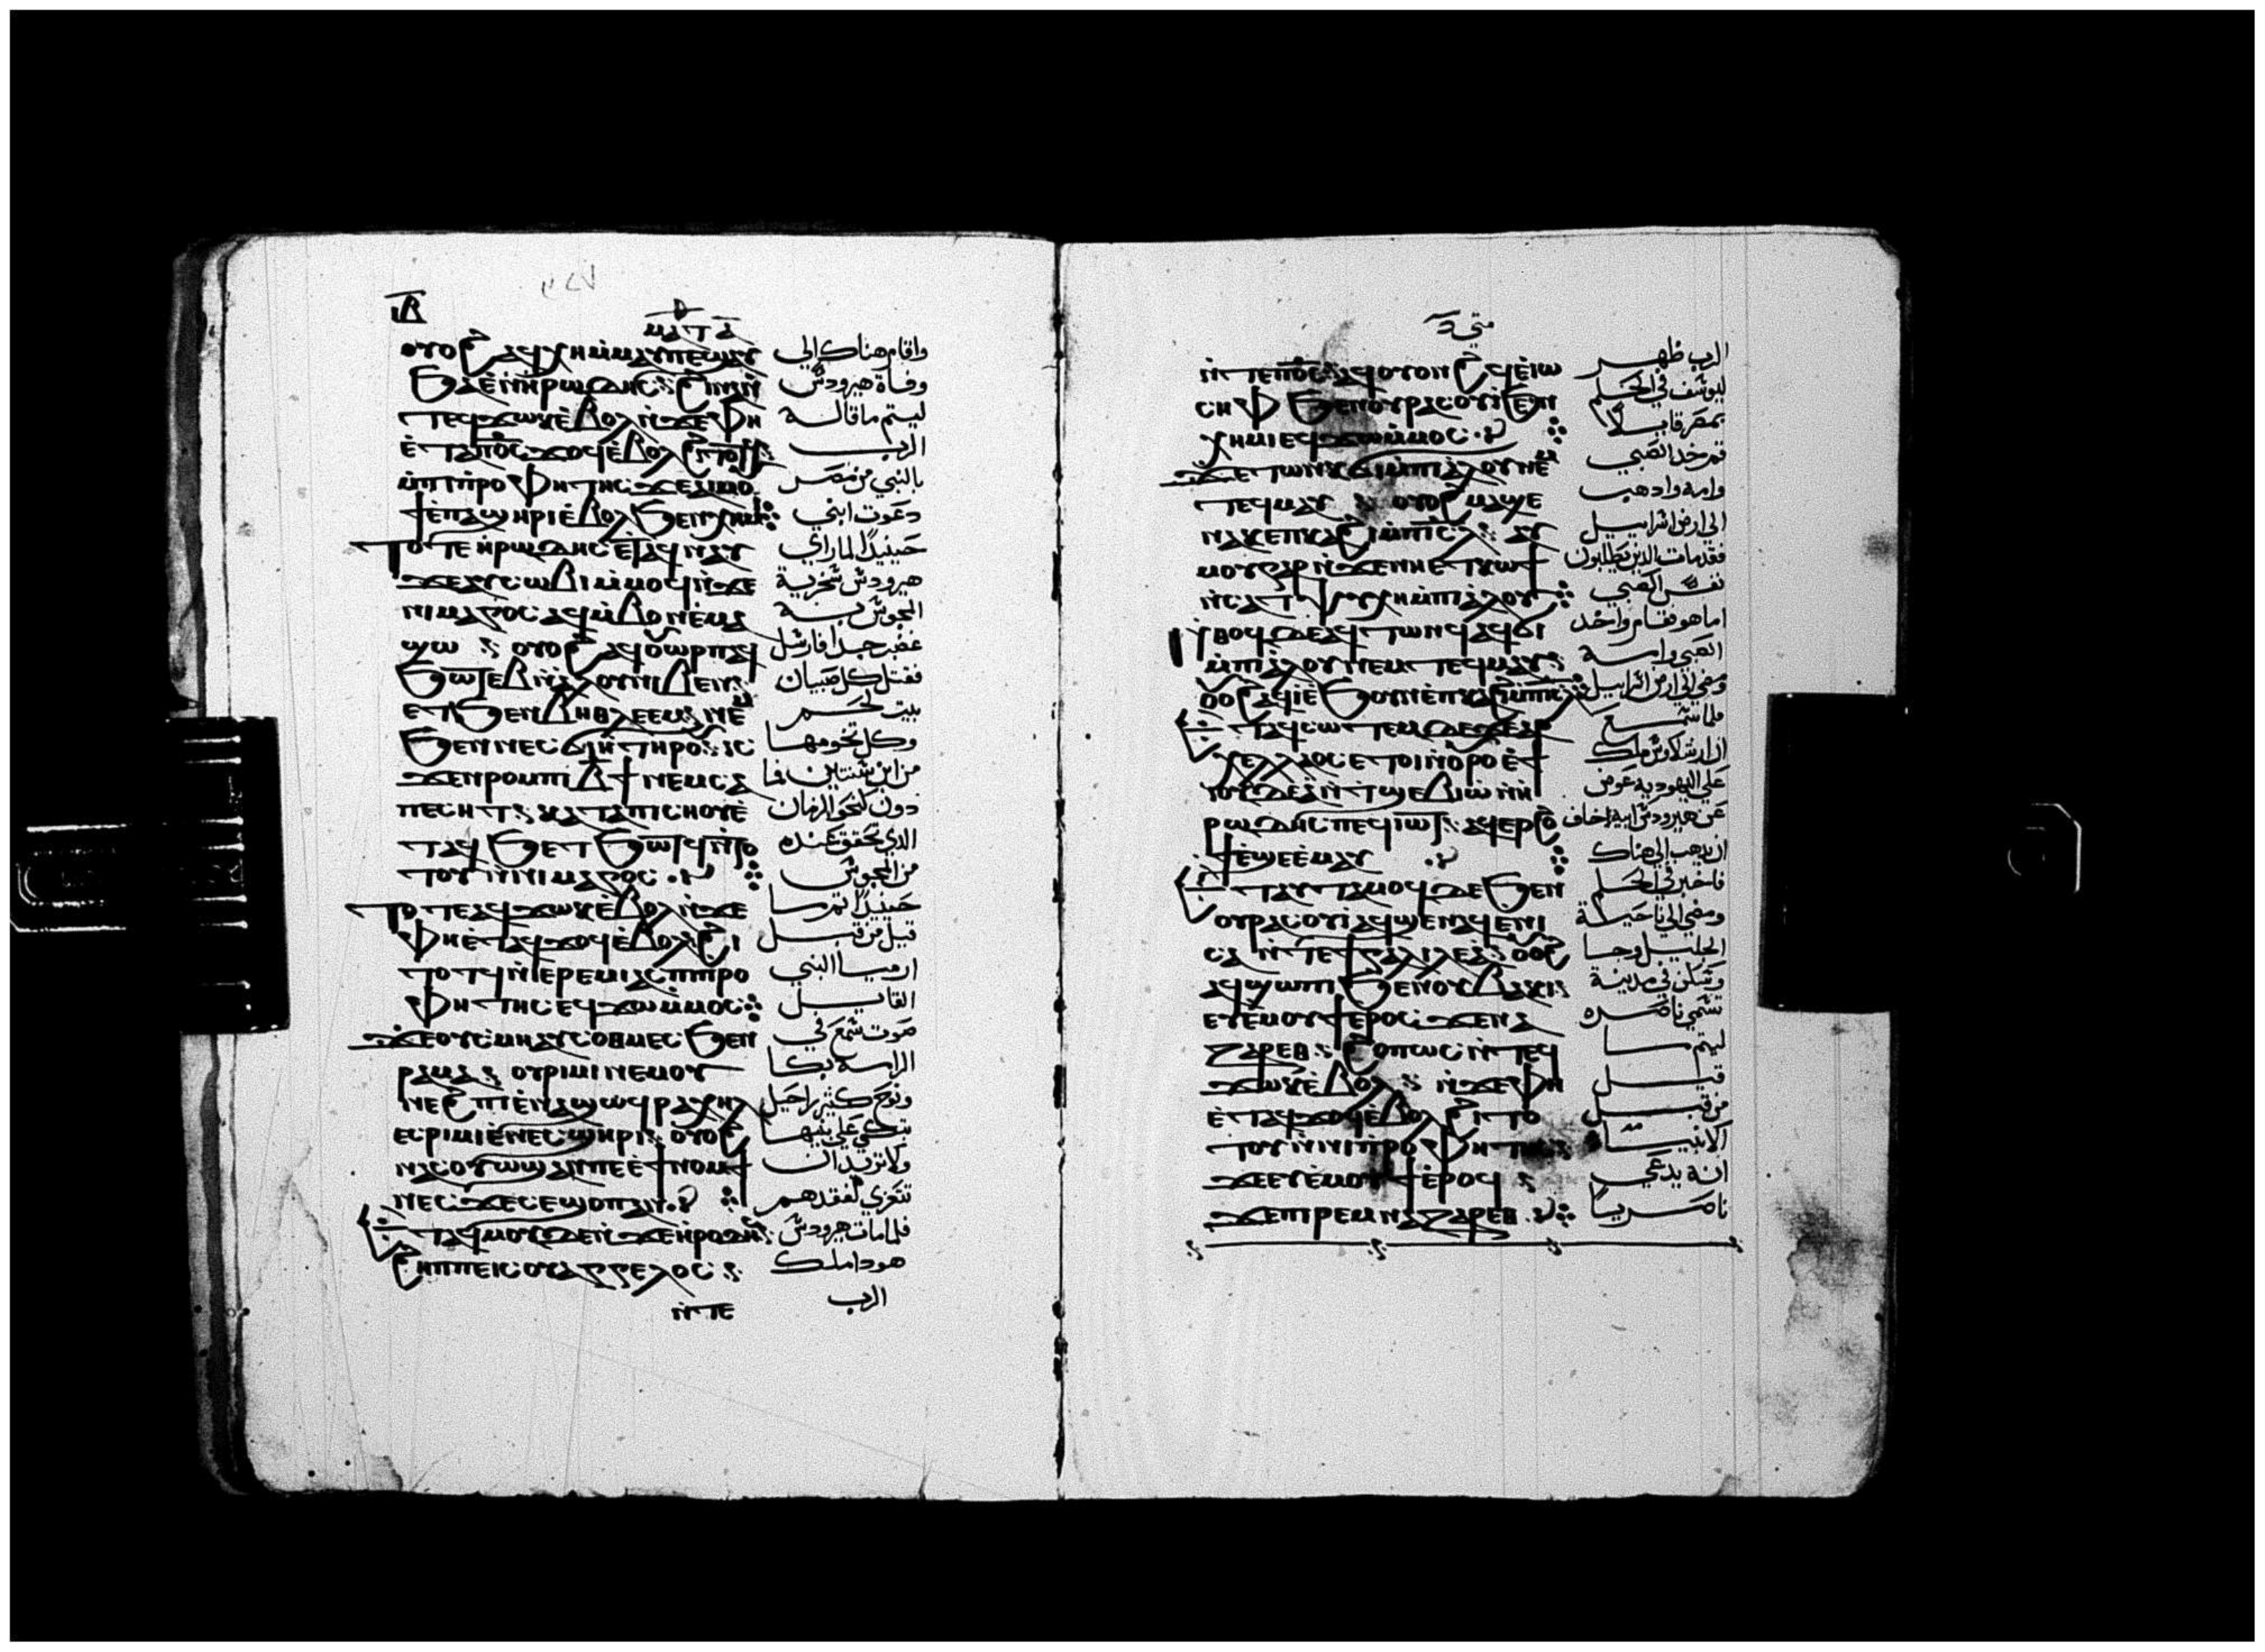 ⲓⲃ
ⲙⲁⲧⲁ
ⲟⲩⲟϩ ⲁϥⲭⲏⲙ̀ⲙⲁⲩⲡⲉϣⲁ
ϧⲁⲉ̀ⲛⲏⲣⲱⲇⲏⲥ ϩⲓⲛⲁⲛ̀
ⲧⲉϥϫⲱⲕⲉ̀ⲃⲟⲗⲛ̀ϫⲉⲫⲏ
ⲉ̀ⲧⲁⲡⲟ̅ⲥ̅ϫⲟϥⲉ̀ⲃⲟⲗ
ⲙ̀ⲡⲓⲡⲣⲟⲫⲏⲧⲏⲥϫⲉⲁⲓⲙⲟ
ϯⲉ̀ⲡⲁϣⲏⲣⲓⲉ̀ⲃⲟⲗϧⲉⲛⲭⲏⲙⲓ
ⲧⲟⲧⲉⲏⲣⲱⲇⲏⲥⲉⲧⲁϥⲛⲁⲩ
ϫⲉⲁⲩⲥⲱⲃⲓⲙ̀ⲙⲟϥⲛ̀ϫⲉ
ⲛⲓⲙⲁⲅⲟⲥⲁϥⲙ̀ⲃⲟⲛⲉ̀ⲙⲁ
ϣⲱ ⲟⲩⲟϩ ⲁϥⲟⲩⲱⲣⲡⲁϥ
ϧⲱⲧⲉⲃⲛ̀ⲁ̀ⲗⲟⲩⲛⲓⲃⲉⲛ
ⲉⲧϧⲉⲛⲃⲏⲑⲗⲉⲉⲙ ⲛⲉⲙ
ϧⲉⲛⲛⲉⲥϭⲓⲏ ⲧⲏⲣⲟⲩ ⲓⲥ
ϫⲉⲛⲣⲟⲙⲡⲓⲃ̅ϯ ⲛⲉⲙⲥⲁ
ⲡⲉⲥⲏⲧ ⲕⲁⲧⲁⲡⲓⲥⲏⲟⲩⲉ̀
ⲧⲁϥϧⲉⲧϧⲱⲧϥⲛ̀ⲧⲟ
ⲧⲟⲩⲛ̀ⲛⲓⲙⲁⲅⲟⲥ
ⲧⲟⲧⲉⲁϥϫⲱⲕⲉ̀ⲃⲟⲗⲛ̀ϫⲉ
ⲫⲏⲉ̀ⲧⲁϥϫⲟϥⲉ̀ⲃⲟⲗϩⲓ
ⲧⲟⲧϥⲛ̀ⲓⲉⲣⲉⲙⲓⲁⲥⲡⲓⲡⲣⲟ
ⲫⲏⲧⲏⲥⲉϥϫⲱⲙ̀ⲙⲟⲥ
ϫⲉⲟⲩⲥⲙⲏⲁⲩⲥⲟⲑⲙⲉⲥϧⲉⲛ
ⲣⲁⲙⲁ ⲟⲩⲣⲓⲙⲓⲛⲉⲙⲟⲩ
ⲛⲉϩⲡⲓⲉ̀ⲛⲁϣⲱϥⲣⲁⲭⲏⲗ
ⲉⲥⲣⲓⲙⲓⲉ̀ⲛⲉⲥϣⲏⲣⲓ ⲟⲩⲟϩ
ⲛⲁⲥⲟⲩⲱϣⲁⲛⲡⲉⲉ̀ϯⲛⲟⲙϯ
ⲛⲉⲥϫⲉⲥⲉϣⲟⲡⲁⲛ
ⲉⲧⲁϥⲙⲟⲩⲇⲉⲛ̀ϫⲉⲏⲣⲟⲇⲏⲥ
ϩⲏⲡⲡⲉⲓⲥⲟⲩⲁⲅⲅⲉⲗⲟⲥ
ⲛ̀ⲧⲉ
واقام هناك الي
وفاة هيرودس
ليتم ماقاله
الرب
بالنبي من مصر
دعوت ابني
حينيذا لما راي
هيرودس سخرية
المجوس به
غضب جدا فارسل
فقتل كل صبيان
بيت لحم
وكل تخومها
من ابن سنتين فما
دون كنحو الزمان
الذي تحقق عنده
من المجوس
حينيذا تم ما
قيل من قبل
ارميا النبي
القايل
صوت سمع في
الرامه بكا
ونوح كثير راحيل
تبكي علي بنيها
ولاتريد ان
تتعزي لفقدهم
فلما مات هيرودس
هوداملك
الرب
متي
ⲛ̀ⲧⲉⲡⲟ̅ⲥ̅ ⲁϥⲟⲩⲟⲛϩϥⲉ̀ⲓⲱ
ⲥⲏⲫ ϧⲉⲛⲟⲩⲣⲁⲥⲟⲩⲓϧⲉⲛ
ⲭⲏⲙⲓⲉϥϫⲱⲙ̀ⲙⲟⲥ
ϫⲉⲧⲱⲛⲕϭⲓⲙ̀ⲡⲓⲁ̀ⲗⲟⲩⲛⲉⲙ
ⲧⲉϥⲙⲁⲩ ⲟⲩⲟϩ ⲙⲁϣⲉ
ⲛⲁⲕⲉⲡⲕⲁϩⲓⲙ̀ⲡⲓⲥ̅ⲗ̅ ⲁⲩ
ⲙⲟⲩⲅⲁⲣⲛ̀ϫⲉⲛⲏⲉⲧⲕⲱϯ
ⲛ̀ⲥⲁⲧⲯⲩⲭⲏⲙ̀ⲡⲓⲁ̀ⲗⲟⲩ
ⲛ̀ⲑⲟϥⲇⲉⲁϥⲧⲱⲛϥⲁϥϭⲓ
ⲙ̀ⲡⲓⲁ̀ⲗⲟⲩⲛⲉⲙⲧⲉϥⲙⲁⲩ
ⲟⲩⲟϩ ⲁϥⲓⲉ̀ϧⲟⲩⲛⲉ̀ⲡⲕⲁϩⲓⲙ̀ⲡⲓⲥ̅ⲗ̅
ⲉⲧⲁϥⲥⲱⲧⲉⲙⲇⲉϫⲉⲁⲣ
ⲭⲉⲗⲁⲟⲥⲉⲧⲟⲓⲛ̀ⲟⲩⲣⲟⲉ̀ϯ
ⲓⲟⲩⲇⲉⲁⲛ̀ⲧϣⲉⲃⲓⲱⲛ̀ⲏ
ⲣⲱⲇⲏⲥⲡⲉϥⲓⲱⲧ ⲁϥⲉⲣϩⲟ
ϯⲉ̀ϣⲉⲉ̀ⲙⲁⲩ
ⲉⲧⲁⲩⲧⲁⲙⲟϥⲇⲉϧⲉⲛ
ⲟⲩⲣⲁⲥⲟⲩⲓⲁϥϣⲉⲛⲁϥⲉⲛⲓ
ⲥⲁ ⲛ̀ⲧⲉϯⲅⲁⲗⲓⲗⲉⲁ ⲟⲩⲟϩ
ⲁϥϣⲱⲡⲓϧⲉⲛⲟⲩⲃⲁⲕⲓ
ⲉⲩⲉ̀ⲙⲟⲩϯⲉⲣⲟⲥϫⲉⲛⲁ
ⲍⲁⲣⲉⲑ ϩⲟⲡⲱⲥⲛ̀ⲧⲉϥ
ϫⲱⲕⲉ̀ⲃⲟⲗ ⲛ̀ϫⲉⲫⲏ
ⲉ̀ⲧⲁϥϫⲟϥⲉ̀ⲃⲟⲗϩⲓⲧⲟ
ⲧⲟⲩⲛ̀ⲛⲓⲡⲣⲟⲫⲏⲧⲏⲥ
ϫⲉⲉⲩⲉ̀ⲙⲟⲩϯⲉ̀ⲣⲟϥ
ϫⲉⲡⲓⲣⲉⲙⲛⲁⲍⲁⲣⲉⲑ
الرب ظهر
ليوسف في الحلم
بمصر قايلا
قم خد الصبي
وامه وادهب
الي ارض اسراييل
فقد مات الدين يطلبون
نفس الصبي
اما هو فقام واخد
الصبي وامه
ومضي الي ارض اسراييل
فلما سمع
ان ارشلاوس ملك
علي اليهودية عوض
عن هيرودس ابيه خاف
ان يدهب الي هناك
فاخبر في الحلم
ومضي الي ناحية
الجليل وجا
وسكن في مدينة
تسمي ناصره
ليتم ما
قيل
من قبل
الانبيا
انه يدعي
ناصريا